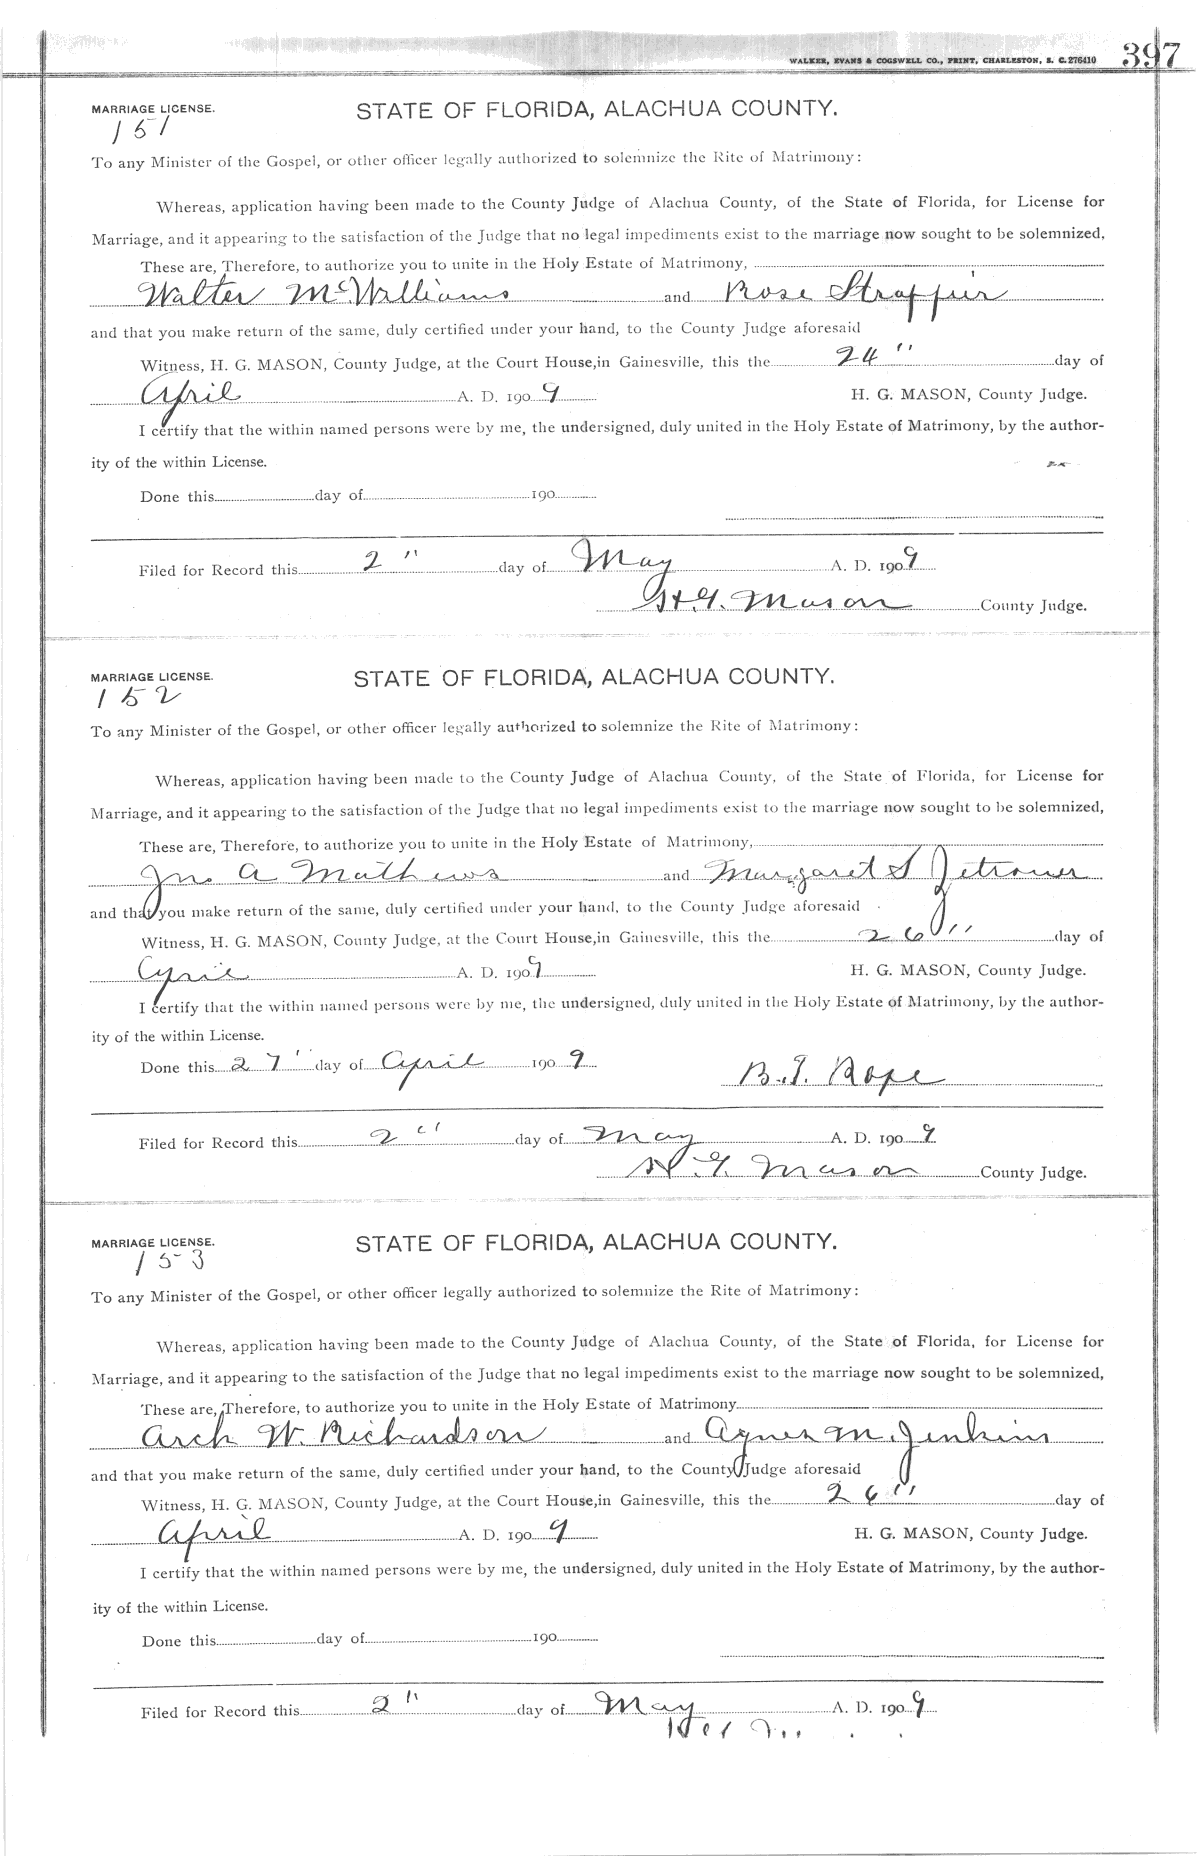 WALKER, EVANS & COGSWELL CO., PRINT, CHARLESTON, S. C. 276410 397
MARRIAGE LICENSE. STATE OF FLORIDA, ALACHUA COUNTY.
151
To any Minister of the Gospel, or other officer legally authorized to solemnize the Rite of Matrimony:
Whereas, application having been made to the County Judge of Alachua County, of the State of Florida, for License for
Marriage, and it appearing to the satisfaction of the Judge that no legal impediments exist to the marriage now sought to be solemnized,
These are, Therefore, to authorize you to unite in the Holy Estate of Matrimony,
Walter McWilliams and Rose
and that you make return of the same, duly certified under your hand, to the County Judge aforesaid
Witness, H. G. MASON, County Judge, at the Court House, in Gainesville, this the 24" day of
April A. D. 1909 H. G. MASON, County Judge.
I certify that the within named persons were by me, the undersigned, duly united in the Holy Estate of Matrimony, by the author-
ity of the within License.
Done this day of 190
Filed for Record this 2" day of May A. D. 1909
H. G. Mason County Judge.
MARRIAGE LICENSE. STATE OF FLORIDA, ALACHUA COUNTY.
152
To any Minister of the Gospel, or other officer legally authorized to solemnize the Rite of Matrimony:
Whereas, application having been made to the County Judge of Alachua County, of the State of Florida, for License for
Marriage, and it appearing to the satisfaction of the Judge that no legal impediments exist to the marriage now sought to be solemnized,
These are, Therefore, to authorize you to unite in the Holy Estate of Matrimony,
Jno A Mathews and Margaret S Zetrouer
and that you make return of the same, duly certified under your hand, to the County Judge aforesaid
Witness, H. G. MASON, County Judge, at the Court House, in Gainesville, this the 26" day of
April A. D. 1909 H. G. MASON, County Judge.
I certify that the within named persons were by me, the undersigned, duly united in the Holy Estate of Matrimony, by the author-
ity of the within License.
Done this 27" day of April 1909 B. T. Rope
Filed for Record this 2" day of May A. D. 1909
H. G. Mason County Judge.
MARRIAGE LICENSE. STATE OF FLORIDA, ALACHUA COUNTY.
153
To any Minister of the Gospel, or other officer legally authorized to solemnize the Rite of Matrimony:
Whereas, application having been made to the County Judge of Alachua County, of the State of Florida, for License for
Marriage, and it appearing to the satisfaction of the Judge that no legal impediments exist to the marriage now sought to be solemnized,
These are, Therefore, to authorize you to unite in the Holy Estate of Matrimony
Arch W. Richardson and Agnes M. Jenkins
and that you make return of the same, duly certified under your hand, to the County Judge aforesaid
Witness, H. G. MASON, County Judge, at the Court House, in Gainesville, this the 26" day of
April A. D. 1909 H. G. MASON, County Judge.
I certify that the within named persons were by me, the undersigned, duly united in the Holy Estate of Matrimony, by the author-
ity of the within License.
Done this day of 190
Filed for Record this 2" day of May A. D. 1909